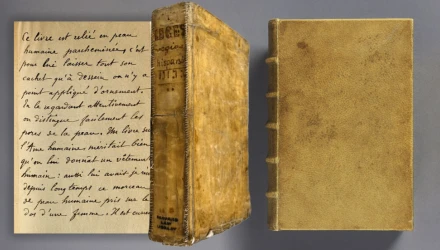 Ce livre est relié en peau
humaine parcheminée, c'est
pour lui laisser tout son
cachet qu'à dessein on n'y a
point appliqué d'ornement.
En le regardant attentivement
on distingue facilement les
pores de la peau. Un livre sur
l'Ame humaine méritait bien
qu'on lui donnât un vêtement
humain : aussi lui avais je
depuis longtemps ce morceau
de peau humaine pris sur le
dos d'une femme. Il est curieux